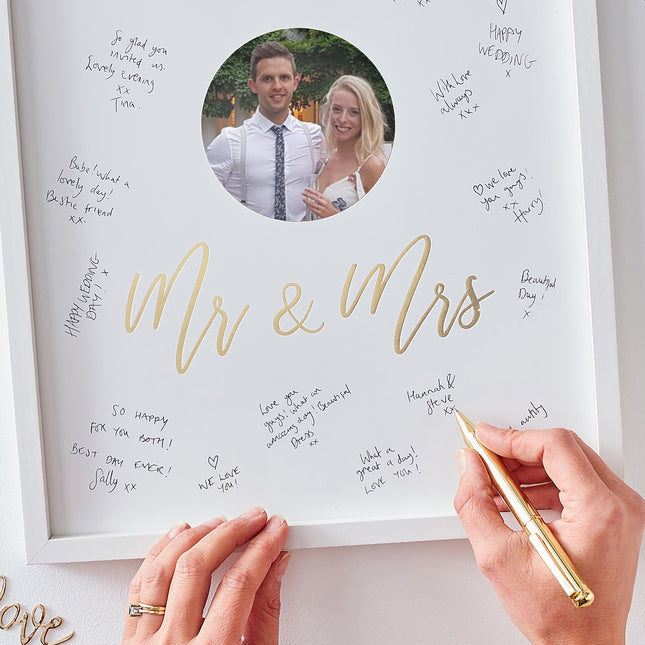 xx
HAPPY
WEDDING
x
So glad you
invited us.
Lovely evening
xx
Tina.
With Love
always
xxx
Babe! What a
lovely day!
Bestie friend
xx.
we love
you guys!
xx
Harry!
HAPPY WEDDING
DAY! x
Mr & Mrs
Beautiful
Day!
x
SO HAPPY
FOR YOU BOTH!
BEST DAY EVER!
Sally xx
Love you
guys! What an
amazing day! Beautiful
Dress
xx
Hannah &
Steve
xx
WE LOVE
YOU!
What a
great a day!
LOVE YOU!
love